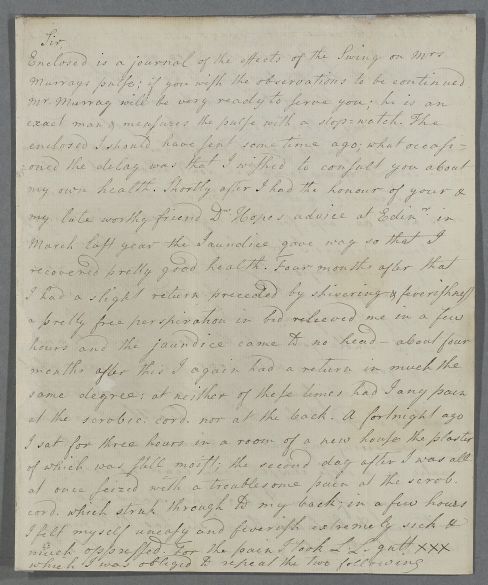 Sir
Enclosed is a journal of the effects of the Swing on Mrs
Murrays pulse; if you wish the observations to be continued
Mr Murray will be very ready to serve you: he is an
exact man & measures the pulse with a stop-watch. The
enclosed I should have sent some time ago; what occasi-
oned the delay was that I wished to consult you about
my own health. Shortly after I had the honour of your &
my late worthy friend Dr Hopes advice at Edinr in
March last year the Jaundice gave way so that I
recovered pretty good health. Four months after that
I had a slight return preceded by shivering & feverishness
a pretty free perspiration in bed relieved me in a few
hours and the jaundice came to no head – about four
months after this I again had a return in much the
same degree; at neither of these times had I any pain
at the scrobic. cord. nor at the back. A fortnight ago
I sat for three hours in a room of a new house the plaster
of which was still moist; the second day after I was all
at once seized with a troublesome pain at the scrob.
cord. which struk through to my back; in a few hours
I felt myself uneasy and feverish extremely sick &
much oppressed. For the pain I took L. L. gutt xxx
which I was obliged to repeat the two following